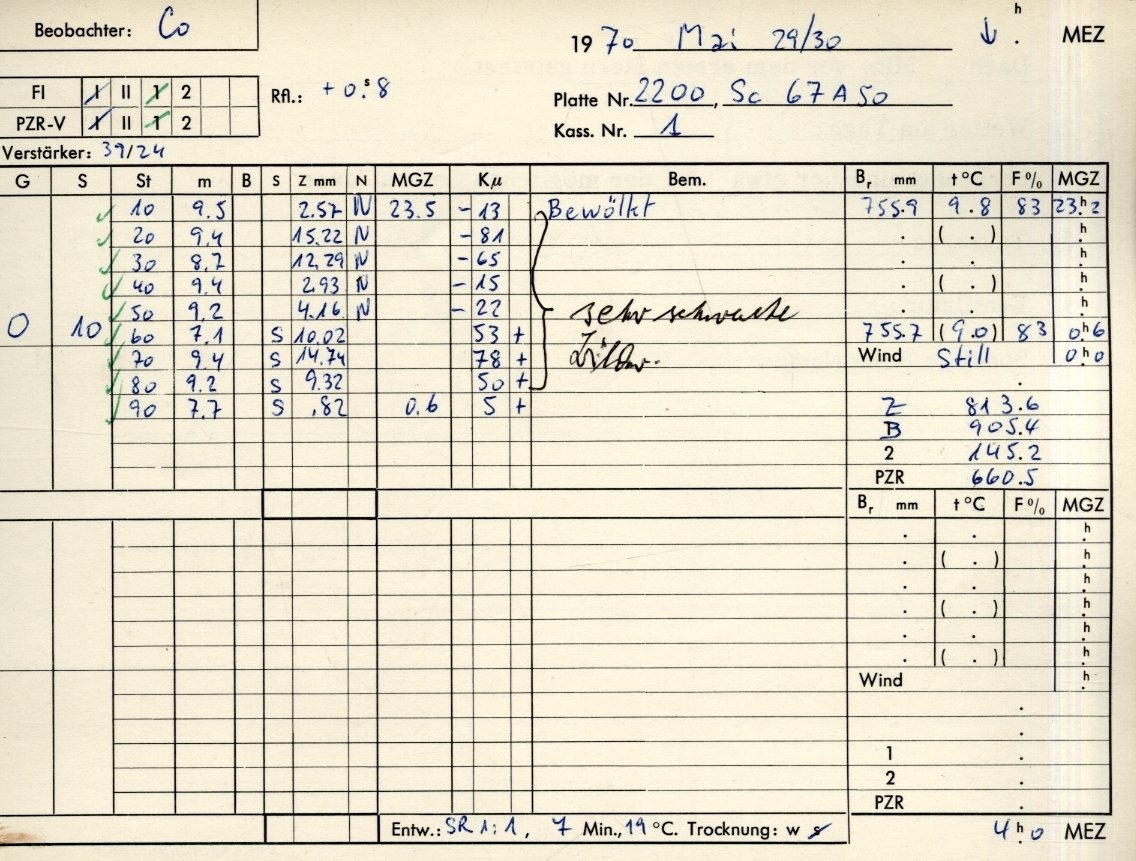 Beobachter: Co
1970 Mai 29/30 ↓ h . MEZ
FI I II 1 2
PZR-V I II 1 2
Rfl.: +0.s8
Platte Nr. 2200, Sc 67A50
Kass. Nr. 1
Verstärker: 39/24
G S St m B S Z mm N MGZ Kμ Bem. Br mm t °C F % MGZ
10 9.5 2.57 N 23.5 -13 Bewölkt 755.9 9.8 83 23.h2
20 9.4 15.22 N -81 . ( . ) .h
30 8.7 12.29 N -65 . . .h
40 9.4 2.93 N -15 . ( . ) .h
50 9.2 4.16 N -22 sehr schwache . . .h
0 10 60 7.1 S 10.02 53 + 755.7 (9.0) 83 0.h6
70 9.4 S 14.74 78 + Wind Still 0.h0
80 9.2 S 9.32 50 + .
90 7.7 S .82 0.6 5 + Z 813.6
B 905.4
2 145.2
PZR 660.5
Br mm t °C F % MGZ
. . .h
. ( . ) .h
. . .h
. ( . ) .h
. . .h
. ( . ) .h
Wind .h
.
.
1 .
2 .
PZR .
Entw.: SR 1:1, 7 Min., 19 °C. Trocknung: w s 4.h0 MEZ